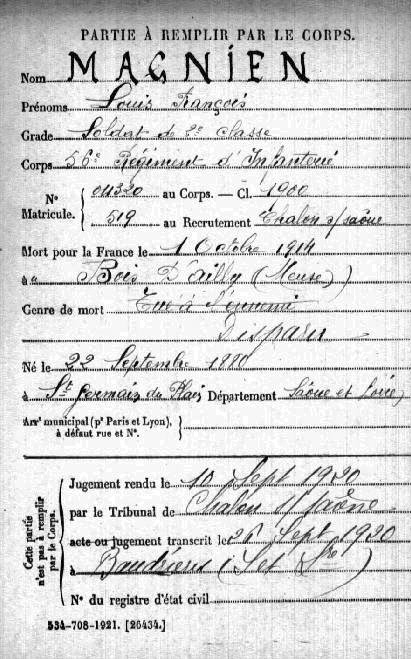 PARTIE À REMPLIR PAR LE CORPS.
Nom MAGNIEN
Prénoms Louis François
Grade Soldat de 2e classe
Corps 56e Régiment d'Infanterie
N° Matricule. { 04320 au Corps. — Cl. 1900
519 au Recrutement Chalon s/saône
Mort pour la France le 1 Octobre 1914
à Bois D'ailly (Meuse)
Genre de mort Tué à l'ennemi
Disparu
Né le 22 Septembre 1880
à St Germain du Plain Département Saône et Loire
Arrt municipal (pr Paris et Lyon), à défaut rue et N°. }
Cette partie n'est pas à remplir par le Corps. {
Jugement rendu le 10 Sept 1920
par le Tribunal de Chalon s/ saône
acte ou jugement transcrit le 26 Sept 1920
à Baudrières (S et Lre)
N° du registre d'état civil
534-708-1921. [26434.]